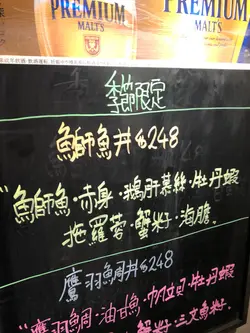 PREMIUM
MALT'S
PREMIUM
MALT'S
季節限定
鰤魚丼 $248
"鰤魚·赤身·鵝肝慕絲·牡丹蝦
拖羅蓉·蟹籽·海膽
鷹羽鯛丼$248
"鷹羽鯛·油甘魚·帆立貝·牡丹蝦
蟹籽·三文魚籽